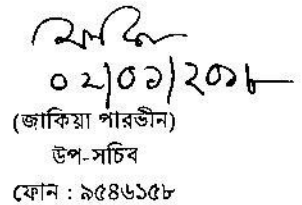 ০২/০১/২০১৮
(জাকিয়া পারভীন)
উপ-সচিব
ফোন : ৯৫৪৬১৫৮